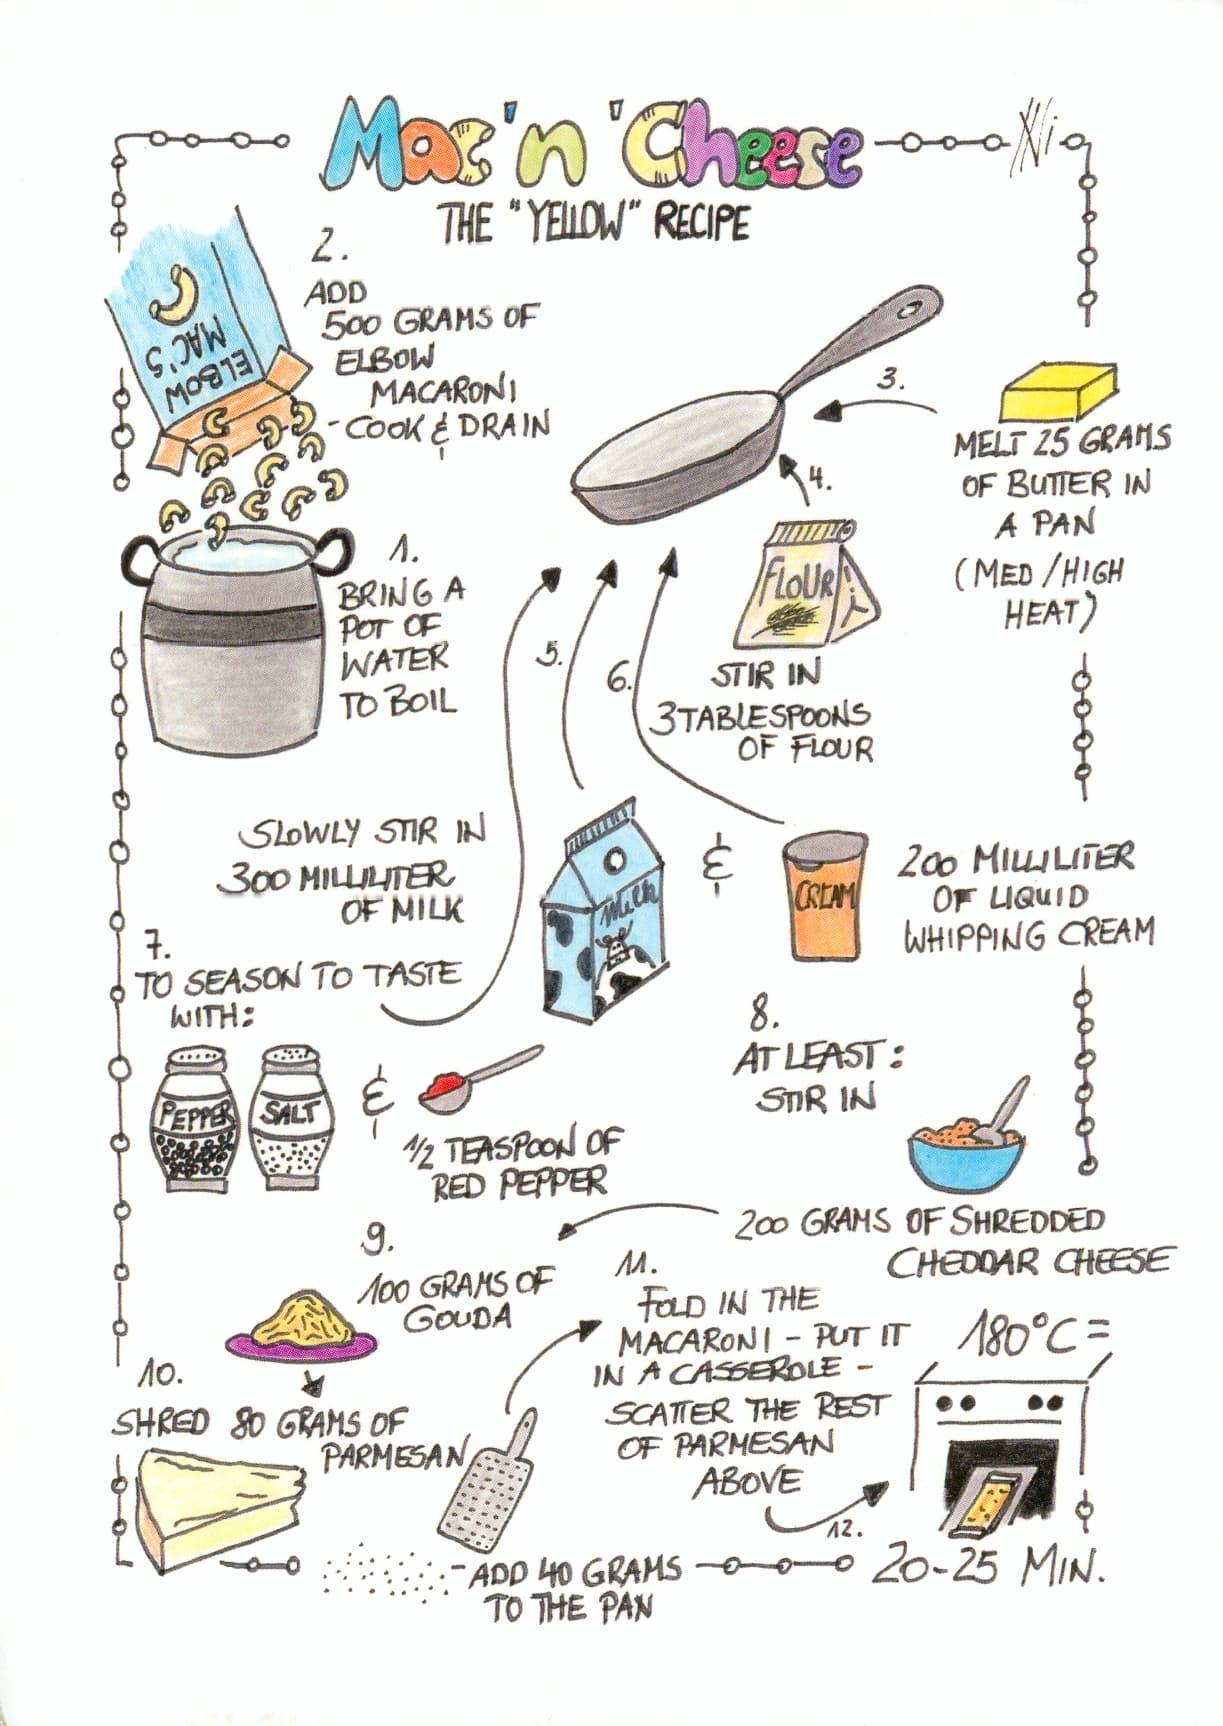 Mac 'n' Cheese
THE "YELLOW" RECIPE
2.
ADD
500 GRAMS OF
ELBOW
MACARONI
- COOK & DRAIN
ELBOW
MAC'S
1.
BRING A
POT OF
WATER
TO BOIL
3.
MELT 25 GRAMS
OF BUTTER IN
A PAN
(MED/HIGH
HEAT)
4.
FLOUR
STIR IN
3 TABLESPOONS
OF FLOUR
5.
6.
SLOWLY STIR IN
300 MILLILITER
OF MILK
Milk
&
CREAM
200 MILLILITER
OF LIQUID
WHIPPING CREAM
7.
TO SEASON TO TASTE
WITH:
PEPPER
SALT
&
1/2 TEASPOON OF
RED PEPPER
8.
AT LEAST:
STIR IN
200 GRAMS OF SHREDDED
CHEDDAR CHEESE
9.
100 GRAMS OF
GOUDA
10.
SHRED 80 GRAMS OF
PARMESAN
- ADD 40 GRAMS
TO THE PAN
11.
FOLD IN THE
MACARONI - PUT IT
IN A CASSEROLE -
SCATTER THE REST
OF PARMESAN
ABOVE
12.
180°C =
20-25 MIN.